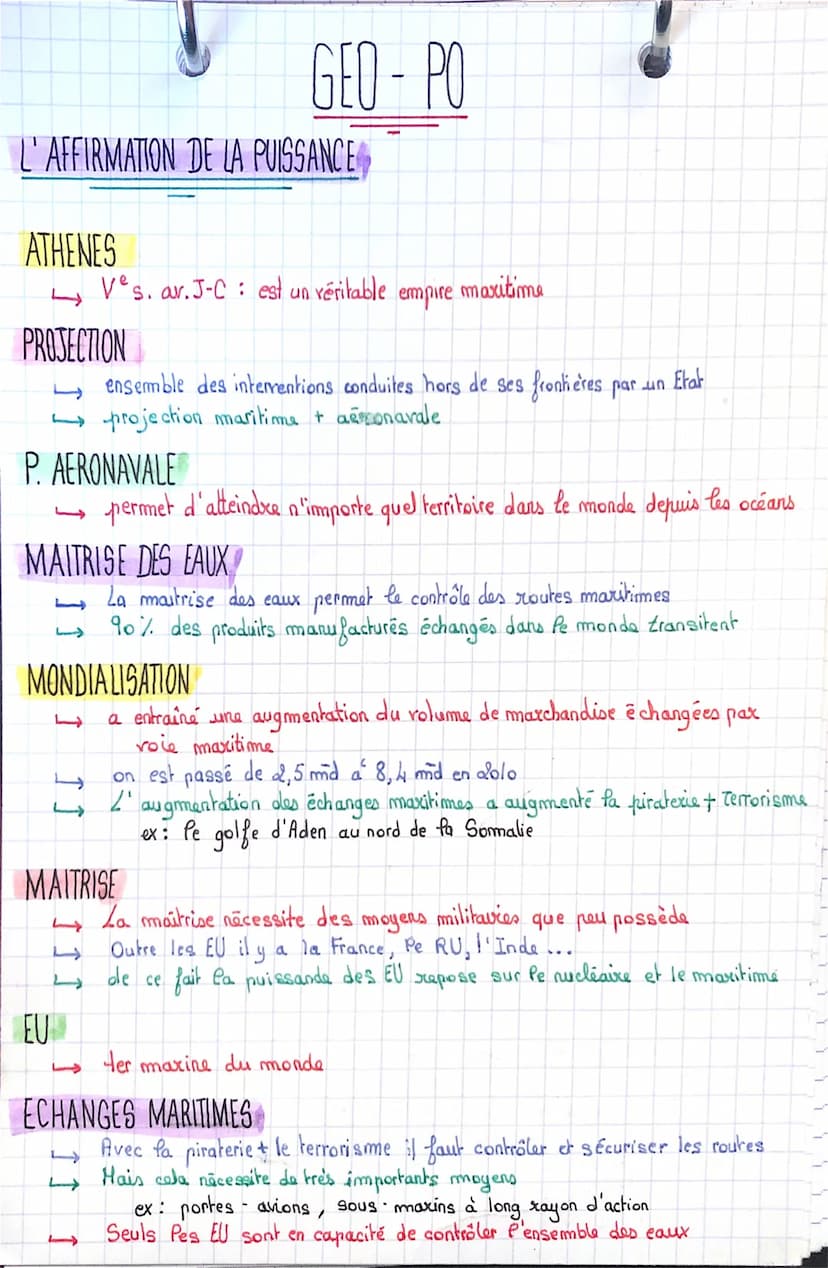 GEO - PO
L'AFFIRMATION DE LA PUISSANCE
ATHENES
↳ Vᵉ s. av. J-C : est un véritable empire maritime
PROJECTION
↳ ensemble des interventions conduites hors de ses frontières par un Etat
↳ projection maritime + aéronavale
P. AERONAVALE
↳ permet d'atteindre n'importe quel territoire dans le monde depuis les océans
MAITRISE DES EAUX
↳ La maitrise des eaux permet le contrôle des routes maritimes
↳ 90% des produits manufacturés échangés dans le monde transitent
MONDIALISATION
↳ a entraîné une augmentation du volume de marchandise échangées par
voie maritime
↳ on est passé de 2,5 mīd à 8,4 mīd en 2010
↳ L'augmentation des échanges maritimes a augmenté la piraterie + Terrorisme
ex : le golfe d'Aden au nord de la Sommalie
MAITRISE
↳ La maîtrise nécessite des moyens militaires que peu possède
↳ Outre les EU il y a la France, le RU, l'Inde ...
↳ de ce fait la puissande des EU repose sur le nucléaire et le maritime
EU
↳ 1er marine du monde
ECHANGES MARITIMES
↳ Avec la piraterie + le terrorisme il faut contrôler et sécuriser les routes
↳ Mais cela nécessite de très importants moyens
ex : portes - avions, sous - marins à long rayon d'action
↳ Seuls les EU sont en capacité de contrôler l'ensemble des eaux